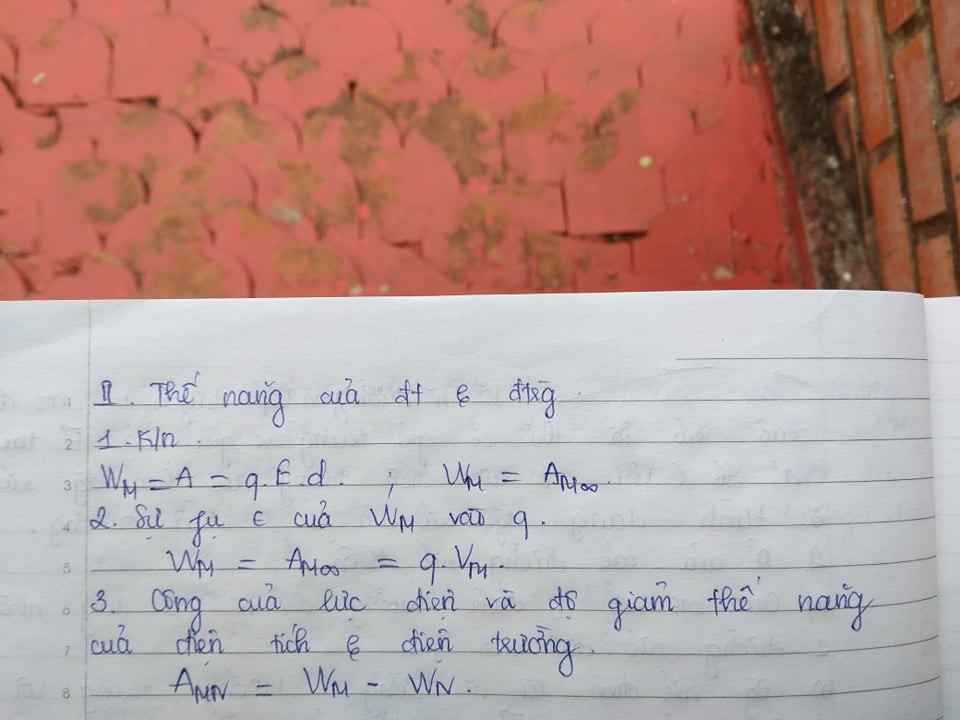 II. Thế năng của đt ξ đtrg
1. K/n.
W_M = A = q.E.d. ; W_M = A_M∞.
2. Sự fụ ∈ của W_M vào q.
W_M = A_M∞ = q.V_M.
3. Công của lực điện và độ giảm thế năng
của điện tích ξ điện trường.
A_MN = W_M - W_N.
1
2
3
4
5
6
7
8